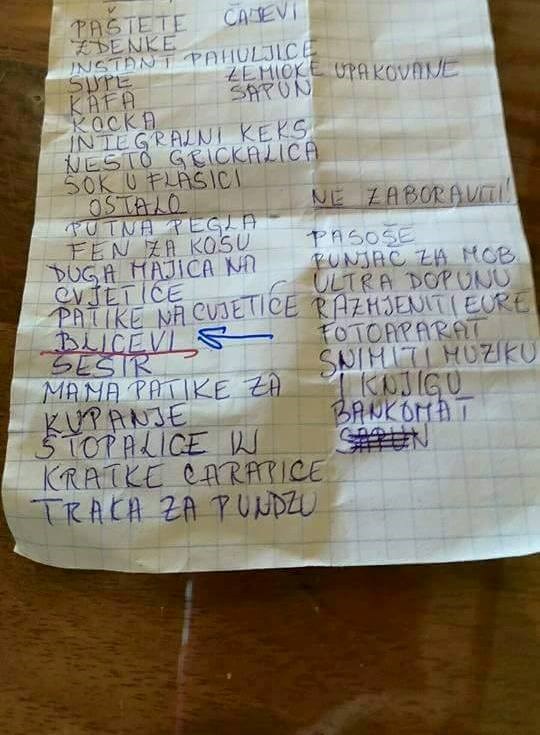 PAŠTETE
ČAJEVI
ZDENKE
INSTANT PAHULJICE
SUPE
ZEMIČKE UPAKOVANE
KAFA
SAPUN
KOCKA
INTEGRALNI KEKS
NEŠTO GRICKALICA
SOK U FLAŠICI
OSTALO
PUTNA PEGLA
FEN ZA KOSU
DUGA MAJICA NA
CVJETIĆE
PATIKE NA CVJETIĆE
BLICEVI
ŠEŠIR
MAMA PATIKE ZA
KUPANJE
STOPALICE ILI
KRATKE ČARAPICE
TRAKA ZA PUNDZU
NE ZABORAVITI!
PASOŠE
PUNJAČ ZA MOB.
ULTRA DOPUNU
RAZMJENITI EURE
FOTOAPARAT
SNIMITI MUZIKU
I KNJIGU
BANKOMAT
SAPUN